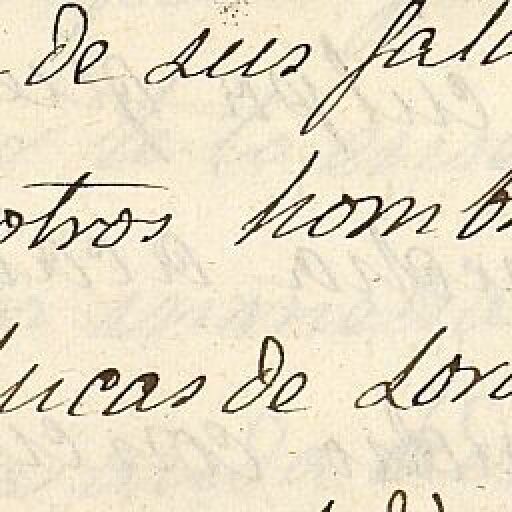 de sus fal
otros homb
ucas de Lor